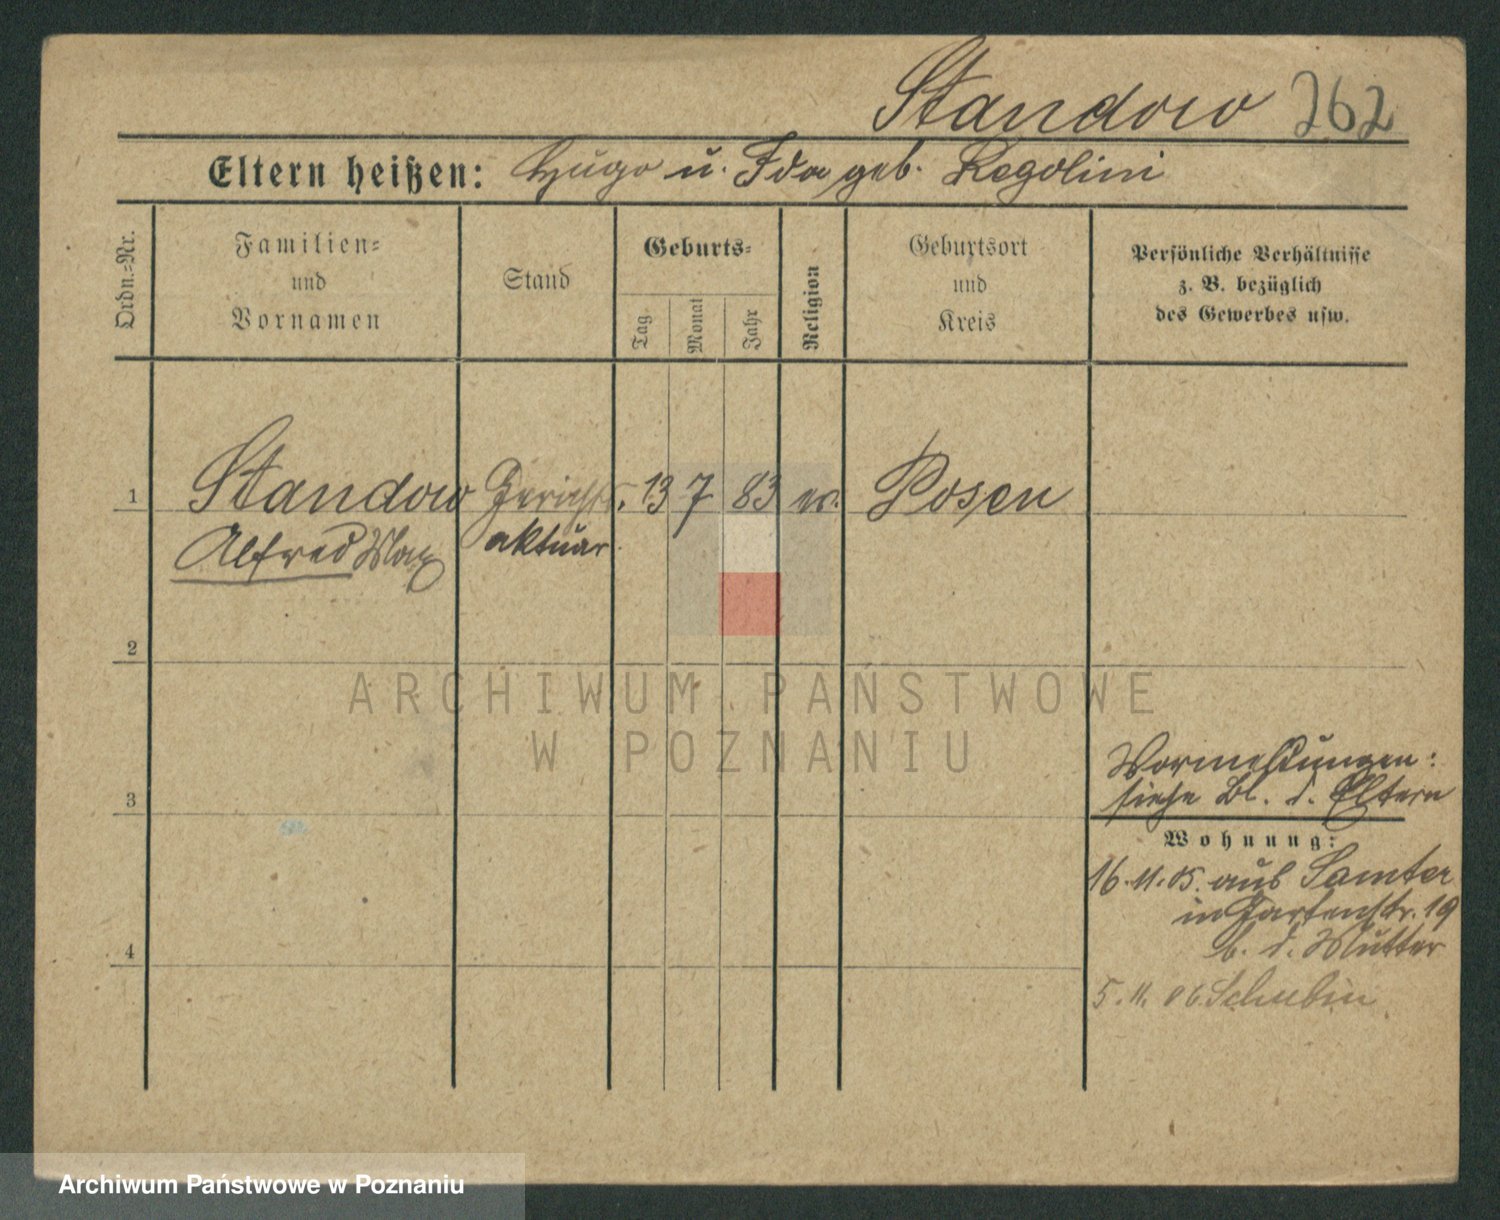 Standow 262
Eltern heißen: Hugo u. Ida geb. Regolini
Ordn.=Nr.
Familien=
und
Vornamen
Stand
Geburts=
Tag
Monat
Jahr
Religion
Geburtsort
und
Kreis
Persönliche Verhältnisse
z. B. bezüglich
des Gewerbes usw.
1 Standow Gerichts. 13 7 83 ev. Posen
Alfred Max aktuar
2
3
4
Vormeldungen:
siehe Bl. d. Eltern
Wohnung:
16.11.05. aus Samter
in Gartenstr. 19
b. d. Mutter
5.11.06 Schubin
ARCHIWUM PAŃSTWOWE
W POZNANIU
Archiwum Państwowe w Poznaniu